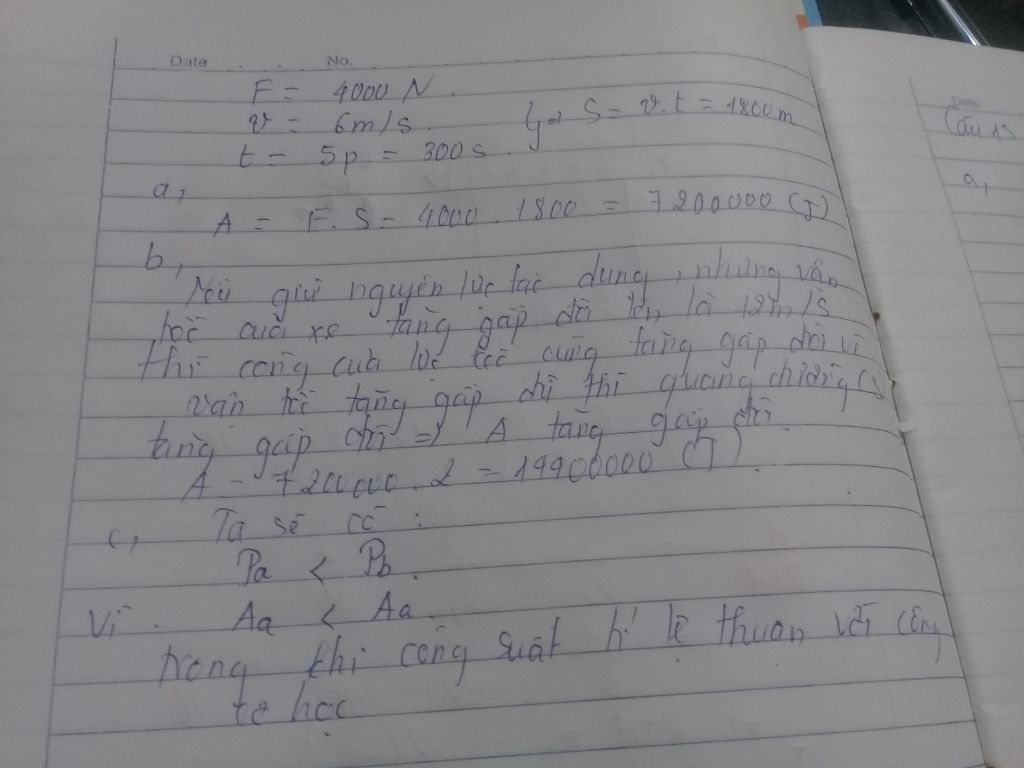 Date No.
F = 4000 N.
v = 6m/s. } => S = v.t = 1800m
t = 5p = 300s
a,
A = F.S = 4000 . 1800 = 7200000 (J)
b,
Nếu giữ nguyên lực tác dụng, nhưng vận
tốc của xe tăng gấp đôi lên là 12m/s
thì công của lực cũng tăng gấp đôi vì
vận tốc tăng gấp đôi thì quãng đường (s)
tăng gấp đôi => A tăng gấp đôi.
A = 7200000 . 2 = 14400000 (J).
c, Ta sẽ có :
Pa < Pb.
Vì . Aa < Aa.
trong khi công suất tỉ lệ thuận với công
cơ học
Date
Câu 15
a,